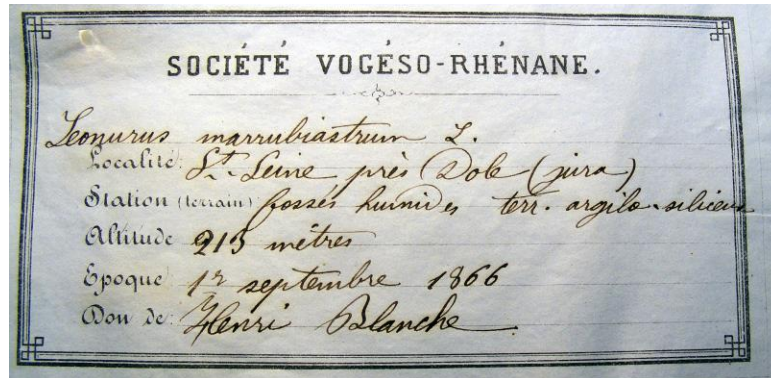 SOCIÉTÉ VOGÉSO-RHÉNANE.
Leonurus marrubiastrum L.
Localité: St. Seine près Dole (jura)
Station (terrain) fossés humides terr. argilo-siliceux
Altitude 213 mètres
Epoque 1er septembre 1866
Don de Henri Blanche